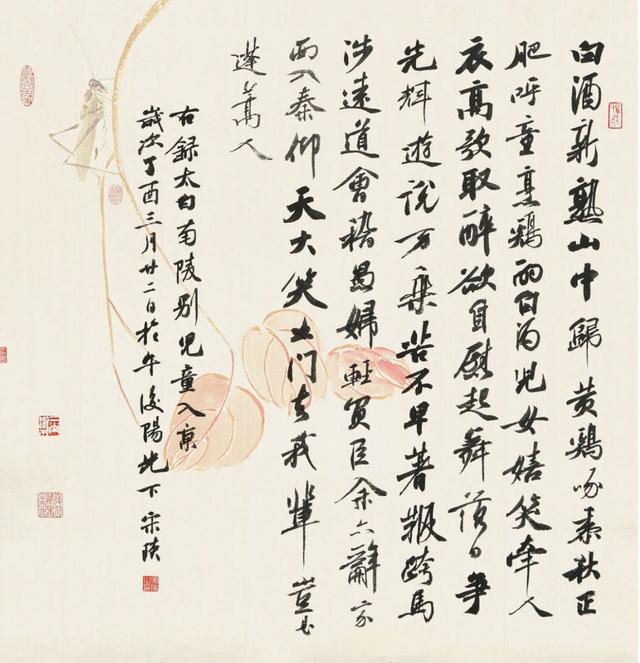 白酒新熟山中歸黄鷄啄黍秋正
肥呼童烹鷄酌白酒兒女嬉笑牽人
衣高歌取醉欲自慰起舞落日爭
光輝遊說万乘苦不早著鞭跨馬
涉遠道會稽愚婦輕買臣余亦辭家
西入秦仰天大笑出門去我輩豈是
蓬蒿人
右録太白南陵别兒童入京
歲次丁酉三月廿二日於午後陽光下宋